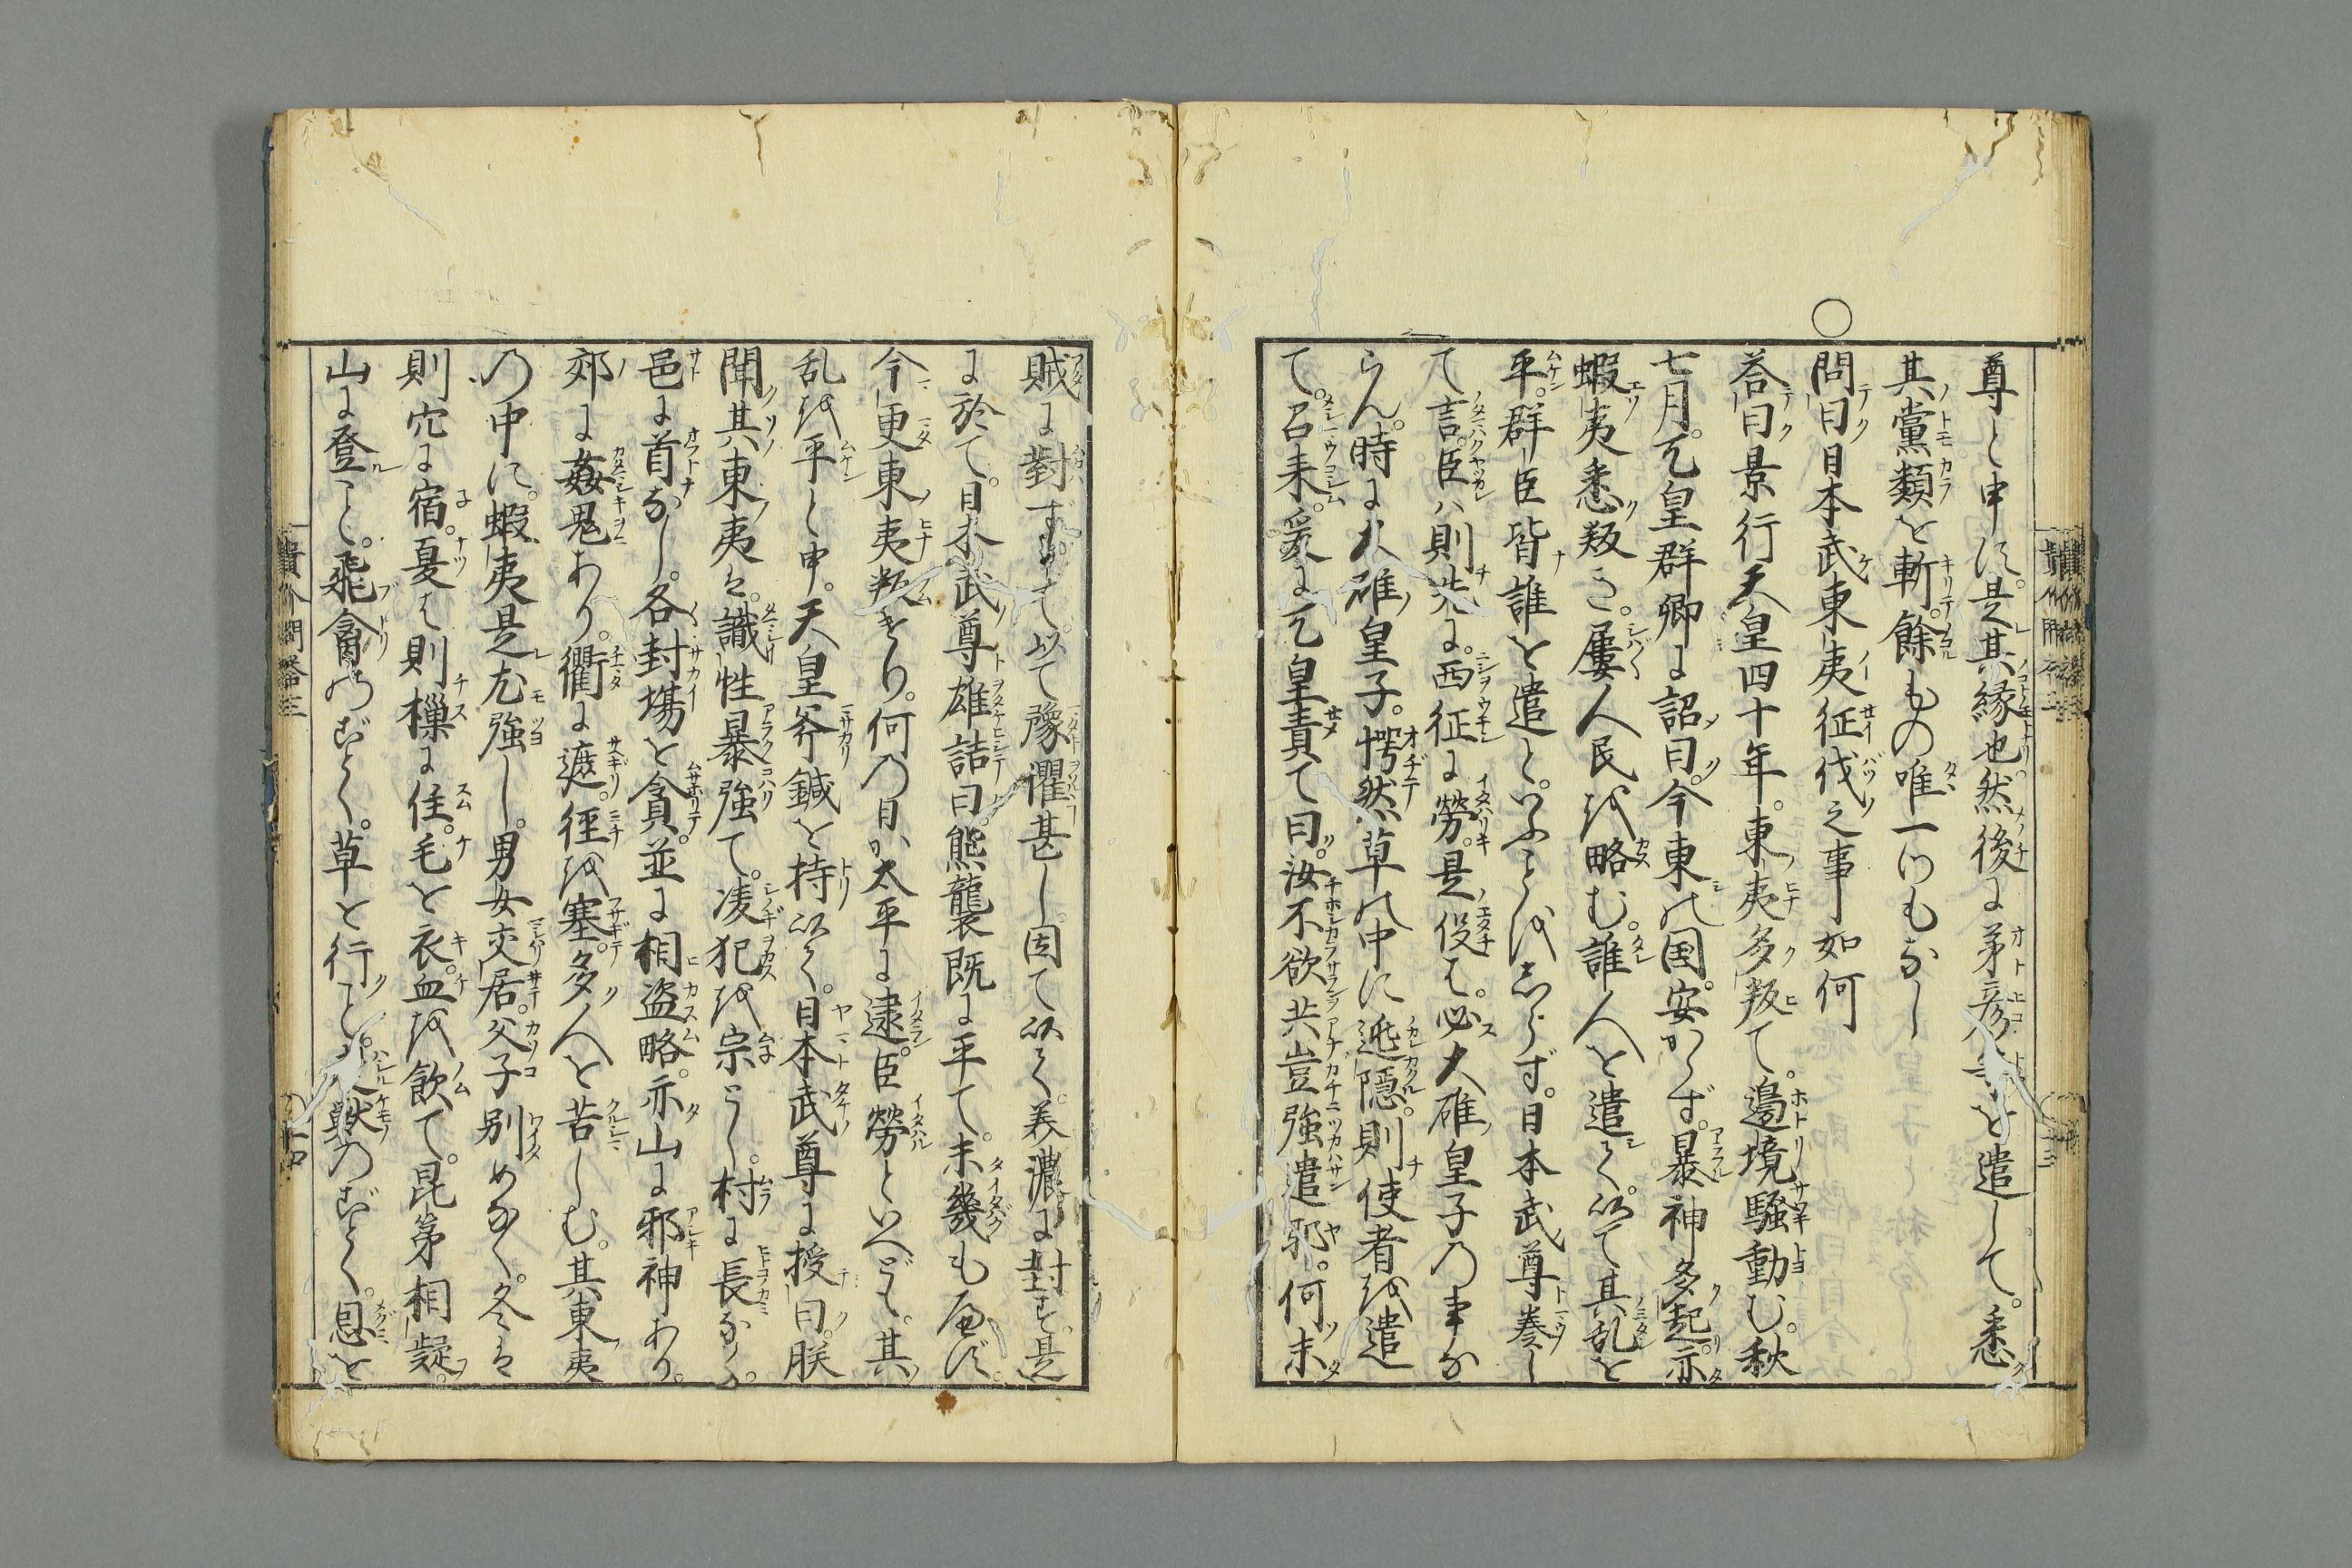 尊と申す。是其縁也然後に弟彦ホを遣して。悉
其黨類を斬。餘もの唯一つもなし
○
問曰日本武東夷征伐之事如何
荅曰景行天皇四十年。東夷多叛て。邊境騒動む。秋
七月。天皇群卿に詔曰。今東の国。安からず。暴神多起。亦
蝦夷悉叛き。屢人民を略む。誰人を遣て。以て其乱を
平。群臣皆誰を遣と。いふことを志らず。日本武尊奏し
て言。臣ハ則先に。西征に勞。是役は。必大碓皇子の事な
らん。時に大碓皇子。愕然草の中に迯隠。則使者を遣
て。召来。爰に天皇責て曰。汝不欲共豈強遣耶。何未
賊に對ずして。以て豫懼甚し因て以て。美濃に封ず。是
に於て。日本武尊雄詰曰。熊襲既に平て。未幾も歴ず。
今更東夷叛けり。何の日か太平に逮。臣勞といへども。其
乱を平と申。天皇斧鉞を持以て。日本武尊に授曰。朕
聞其東夷は。識性暴強て。凌犯を宗とし。村に長なく。
邑に首なし。各封堺を貪。並に相盗略。亦山に邪神あり。
郊に姦鬼あり。衢に遮。徑を塞。多人を苦しむ。其東夷
の中に。蝦夷是尤強し。男女交居。父子別めなく。冬は
則穴に宿。夏は則樔に住。毛を衣。血を飲て。昆弟相疑。
山に登こと。飛禽のごとく。草を行こと。走獣のごとく。恩を
貴介問荅三